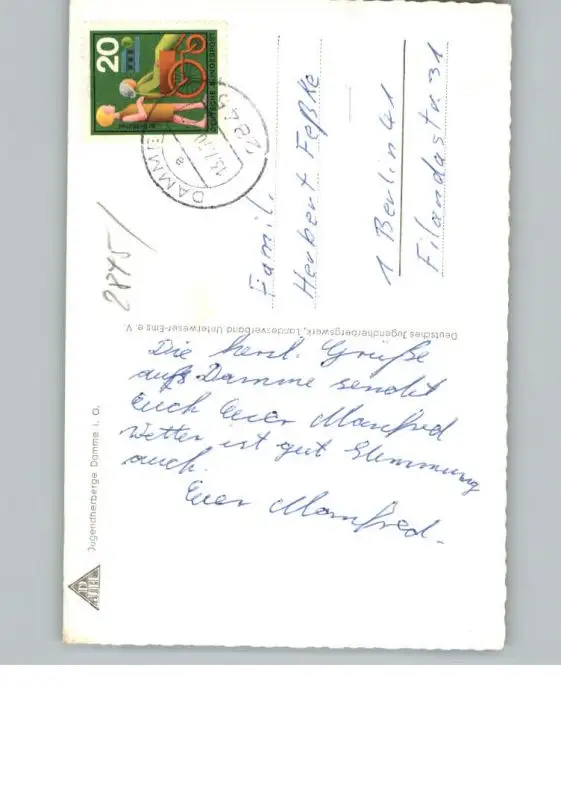 20
DEUTSCHE BUNDESPOST
2845
DAMME
13.7.70
a
2845/
Famil.
Herbert Feßke
1 Berlin 41
Filandastr 31
Deutsches Jugendherbergswerk, Landesverband Unterweser-Ems e. V.
Die herzl. Grüße
aus Damme sendet
Euch Euer Manfred
Wetter ist gut Stimmung
auch.
Euer Manfred.
Jugendherberge Damme i. O.
DJH